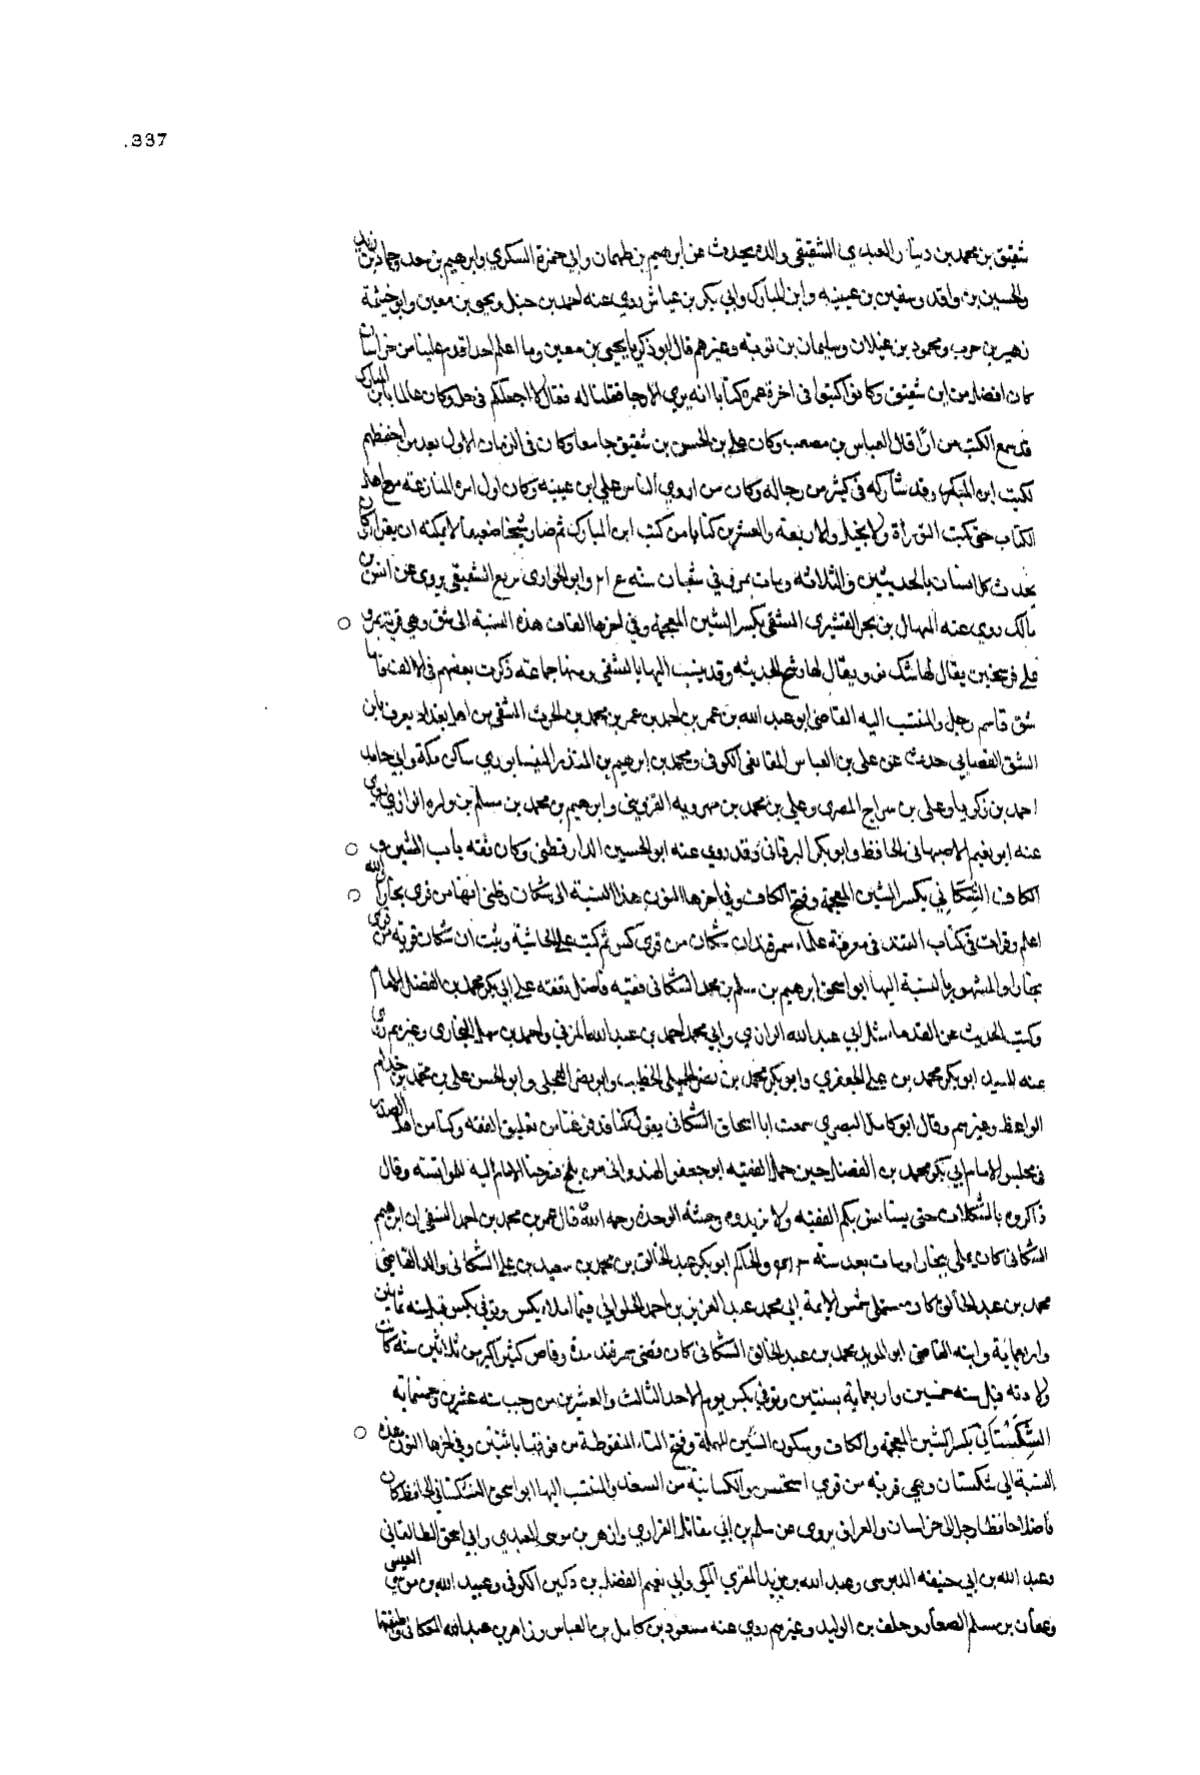 .337
شقيق بن محمد بن دينار العبدي الشقيقي والده يحدث عن ابرهيم بن طهمان وابي حمزة السكري وابرهيم بن سعد وحماد بن زيد
والحسين بن واقد وسفين بن عيينه وابن المبارك وابي بكر بن عياش روي عنه احمد بن حنبل ويحيى بن معين وابو خيثمة
زهير بن حرب ومحمود بن غيلان وسليمان بن توبه وغيرهم قال ابو زكريا يحيى بن معين وما اعلم احدا قدم علينا من خراسان
كان افضل من ابن شقيق وكانوا كتبوا في اخرة عمره كتابا انه يري الارجا فقلنا له فقال لا اجعلكم في حل وكان عالما بابن المبارك
قد سمع الكتب مرارا قال العباس بن مصعب وكان علي بن الحسن بن شقيق جامعا وكان في الزمان الاول يعد من احفظهم
لكتب ابن المبرك وقد شاركه في كثير من رجاله وكان من اروي الناس علي ابن عيينه وكان اول امره المنازعة مع اهل
الكتاب حتى كتب التوراة والانجيل والاربعة والعشرين كتابا من كتب ابن المبارك ثم صار شيخا ضعيفا لا يمكنه ان يقرا كان
يحدث كل انسان بالحديثين والثلاثه ومات بمرو في شعبان سنه وابو الحواري مربع الشقيقي يروي عن انس بن
مالك روي عنه المهال بن بحر القشيري الشقي بكسر الشين المعجمة وفي اخرها القاف هذه النسبة الى شق وهي قرية بمرو
علي فرسخين يقال لها شك نو ويقال لها شق الحديثه وقد ينسب اليها بالشقي ومنها جماعة ذكرت بعضهم في الالف فاما
شق قاسم رجل والمنتسب اليه القاضي ابو عبد الله بن عمر بن احمد بن عمر بن محمد بن الحرث الشقي من اهل بغداد يعرف بابن
الشق القصباني حدث عن علي بن العباس المقانعي الكوفي ومحمد بن ابرهيم بن المنذر النيسابوري ساكن مكة وابي حامد
احمد بن زكريا وعلي بن سراج المصري وعلي بن محمد بن مهرويه القزويني وابرهيم بن محمد بن مسلم بن واره الرازي روي
عنه ابو نعيم الاصبهاني الحافظ وابو بكر البرقاني وقد روي عنه ابو الحسين الدارقطني وكان ثقه باب الشين و
الكاف الشكاني بكسر الشين المعجمة وفتح الكاف وفي اخرها النون هذا النسبة الى شكان وظني انها من قري بخارا والله
اعلم وقرات في كتاب القند في معرفة علماء سمرقند ان شكان من قري كس ثم كتب علي الحاشية ويثبت ان شكان قرية من قري
بخارا والمشهور بالنسبة اليها ابو اسحق ابرهيم بن سلم بن محمد الشكاني فقيه فاضل تفقه علي ابي بكر محمد بن الفضل الامام
وكتب الحديث عن القدماء مثل ابي عبد الله الرازي وابي محمد احمد بن عبد الله المزني واحمد بن سهل البخاري وغيرهم روي
عنه السيد ابو بكر محمد بن علي الجعفري وابو بكر محمد بن نصر الجميلي الخطيب وابو نصر العجلي وابو الحسن علي بن محمد بن خذام
الواعظ وغيرهم وقال ابو كامل البصري سمعت ابا اسحاق الشكاني يقول كنا قد فرغنا من تعليق الفقه وكنا من اهل الصدر
في مجلس الامام ابي بكر محمد بن الفضل حين حمل الفقيه ابو جعفر الهندواني من بلخ فوجهنا الامام اليه للموانسة وقال
ذاكروه بالمشكلات حتى يستانس بكم الفقيه ولا تزيدوه وحشه الوحده رحمه الله قال عمر بن محمد بن احمد النسفي ان ابرهيم
الشكاني كان يملي ببخارا ومات بعد سنه والحاكم ابو بكر عبد الخالق بن محمد بن سعيد بن علي الشكاني والد القاضي
محمد بن عبد الخالق كان مستملي شمس الايمة ابي محمد عبد العزيز بن احمد الحلواني فيما املاه بكس وتوفي بكس قبل سنه ثمانين
واربعماية وابنه القاضي ابو المويد محمد بن عبد الخالق الشكاني كان قضي سمرقند مدة وقاص كثير اكثر من ثلاثين سنه كانت
ولادته قبل سنه خمسين واربعماية بسنتين وتوفي بكس يوم الاحد الثالث والعشرين من رجب سنه عشرين وخمسماية
الشكستاني بكسر الشين المعجمة والكاف وسكون السين المهملة وفتح التاء المنقوطة من فوقها باثنتين وفي اخرها النون هذه
النسبة الي شكستان وهي قريه من قري اشتيخن والكشانية من السغد والمنتسب اليها ابو اسحق الشكستاني الحافظ كان
فاضلا حافظا رحل الى خراسان والعراق يروي عن سلم بن ابي مقاتل الفزاري وازهر بن موسى العبدي وابي اسحق الطالقاني
وعبد الله بن ابي حنيفه الدبوسي وعبد الله بن يزيد المقري المكي وابي نعيم الفضل بن دكين الكوفي وعبيد الله بن موسي العبسي
وعفان بن مسلم الصفار وخلف بن الوليد وغيرهم روي عنه مسعود بن كامل بن العباس وزاهر بن عبد الله وطبقتها